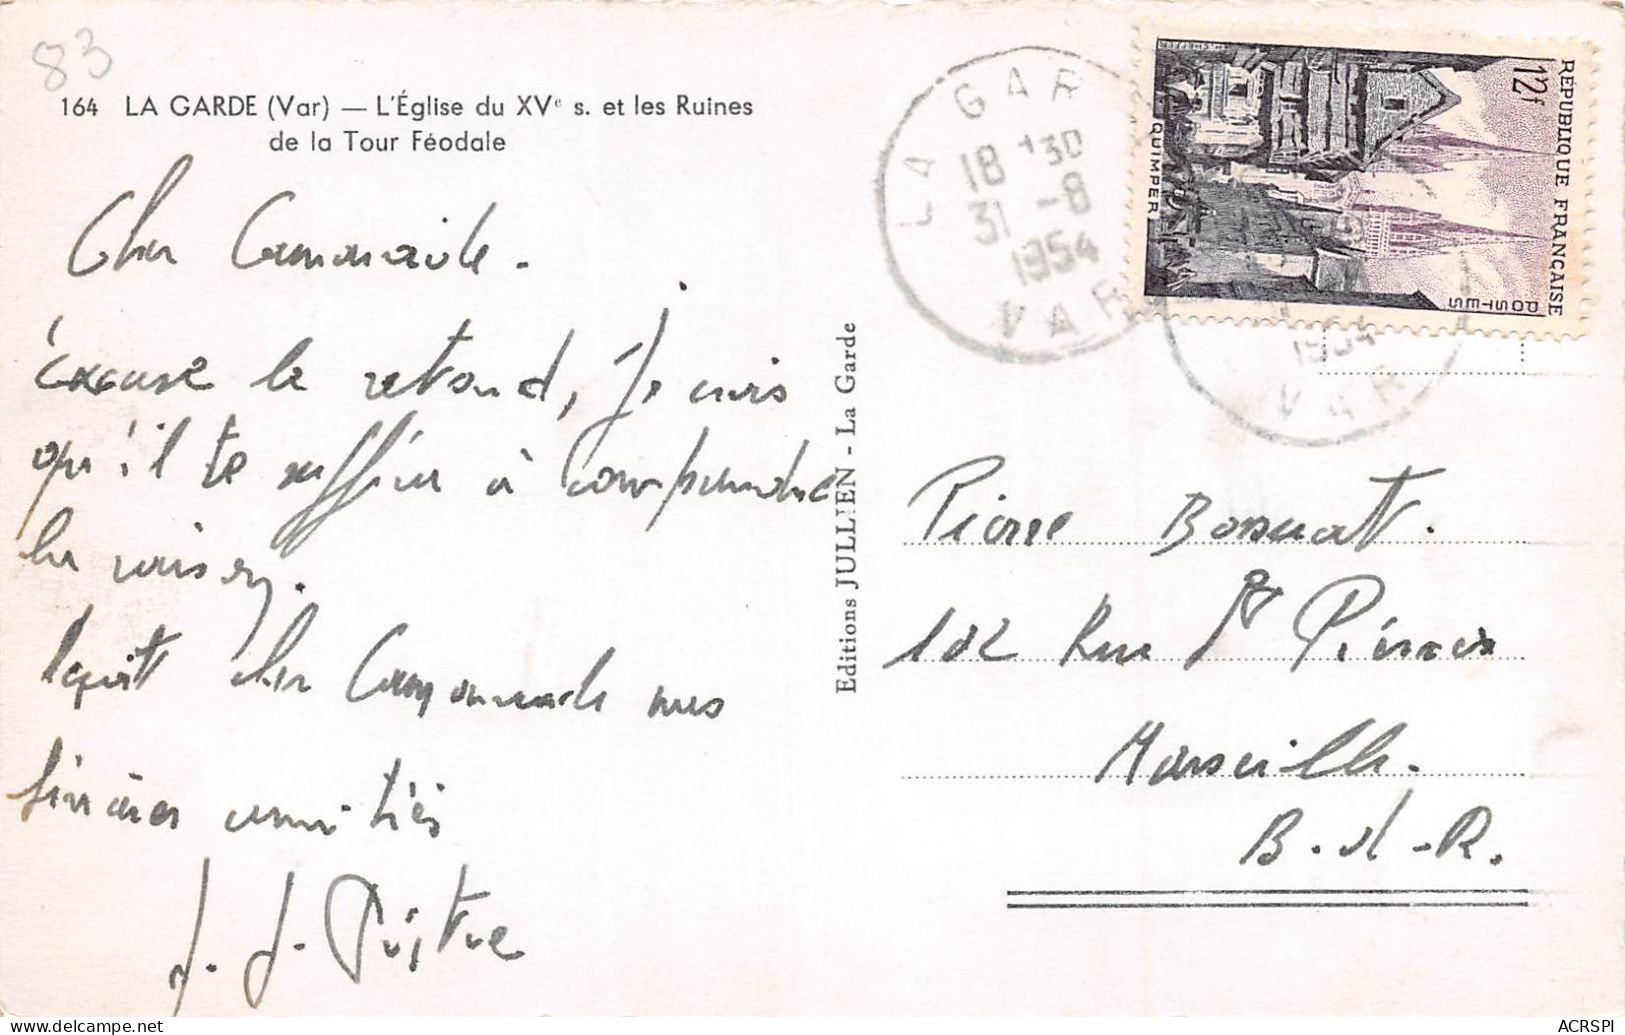 83
164 LA GARDE (Var) — L'Église du XVe s. et les Ruines
de la Tour Féodale
Cher Camarade.
éxcuse le retard, je crois
qu'il te suffira à comprendre
la raison.
Reçoit cher Camarade mes
sincères amitiés
J. J. Pistre
Editions JULLIEN - La Garde
LA GARDE
18 H30
31 -8
1954
VAR
REPUBLIQUE FRANÇAISE
12f
POSTES
QUIMPER
1954
VAR
Pierre Bossuat.
102 Rue St Pierre
Marseille.
B.d.R.
ACRSPI